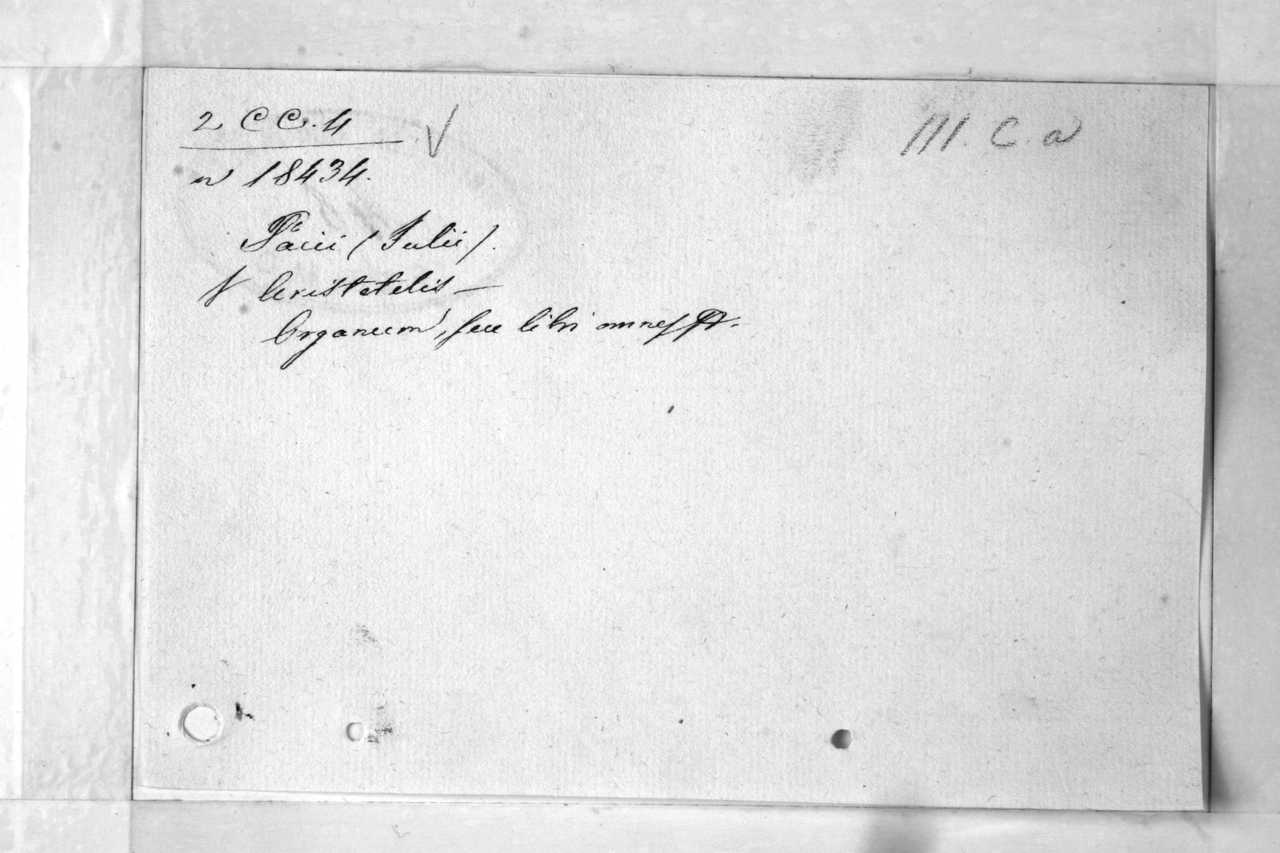 2 CC. 4 V III. C. a
n 18434.
Pacii (Julii).
Aristotelis —
Organum, seu libri omnes